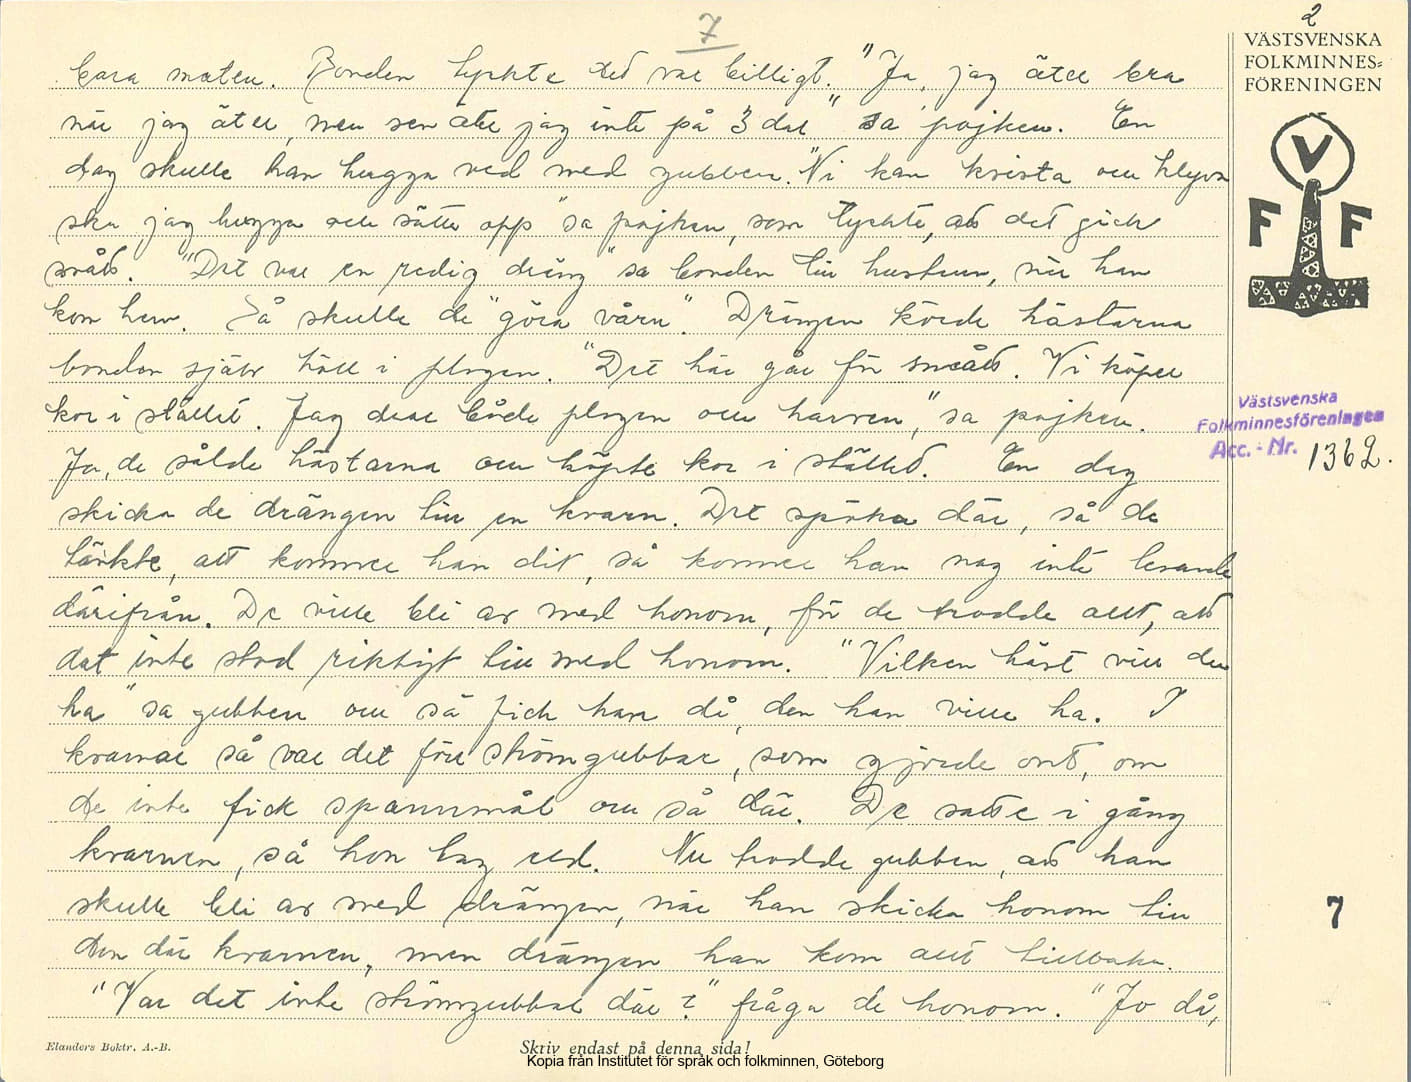 7
2
VÄSTSVENSKA
FOLKMINNES-
FÖRENINGEN
V
F F
bara maten. Bonden tyckte det var billigt. "Ja, jag äter bra
när jag äter, men sen äter jag inte på 3 dar" sa pojken. En
dag skulle han hugga ved med gubben. "Ni kan kvista och klyva
ska jag hugga och sätta opp" sa pojken, som tyckte, att det gick
smått. "Det var en redig dräng" sa bonden till hustrun, när han
kom hem. Så skulle de "göra vårn". Drängen körde hästarna
bonden själv höll i plogen. "Det här går för smått. Vi köper
kor i stället. Jag drar både plogen och harven," sa pojken.
Ja, de sålde hästarna och köpte kor i stället. En dag
skicka de drängen till en kvarn. Det spöka där, så de
tänkte, att kommer han dit, så kommer han nog inte levande
därifrån. De ville bli av med honom, för de trodde allt, att
det inte stod riktigt till med honom. "Vilken häst vill du
ha" sa gubben och så fick han då, den han ville ha. I
kvarnar så var det förr strömgubbar, som gjorde ont, om
de inte fick spannmål och så där. De satte i gång
kvarnen, så hon
Nu trodde gubben, att han
skulle bli av med drängen, när han skicka honom till
den där kvarnen, men drängen han kom allt tillbaka.
"Var det inte strömgubbar där?" fråga de honom. "Jo då,
Västsvenska
Folkminnesföreningen
Acc. - Nr. 1362.
7
Elanders Boktr. A.-B.
Skriv endast på denna sida!
Kopia från Institutet för språk och folkminnen, Göteborg